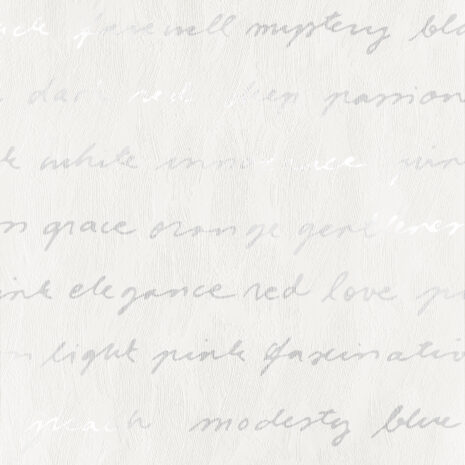 farewell mystery
dark red deep passion
white innocence
grace orange gentleness
pink elegance red love
light pink fascination
peach modesty blue